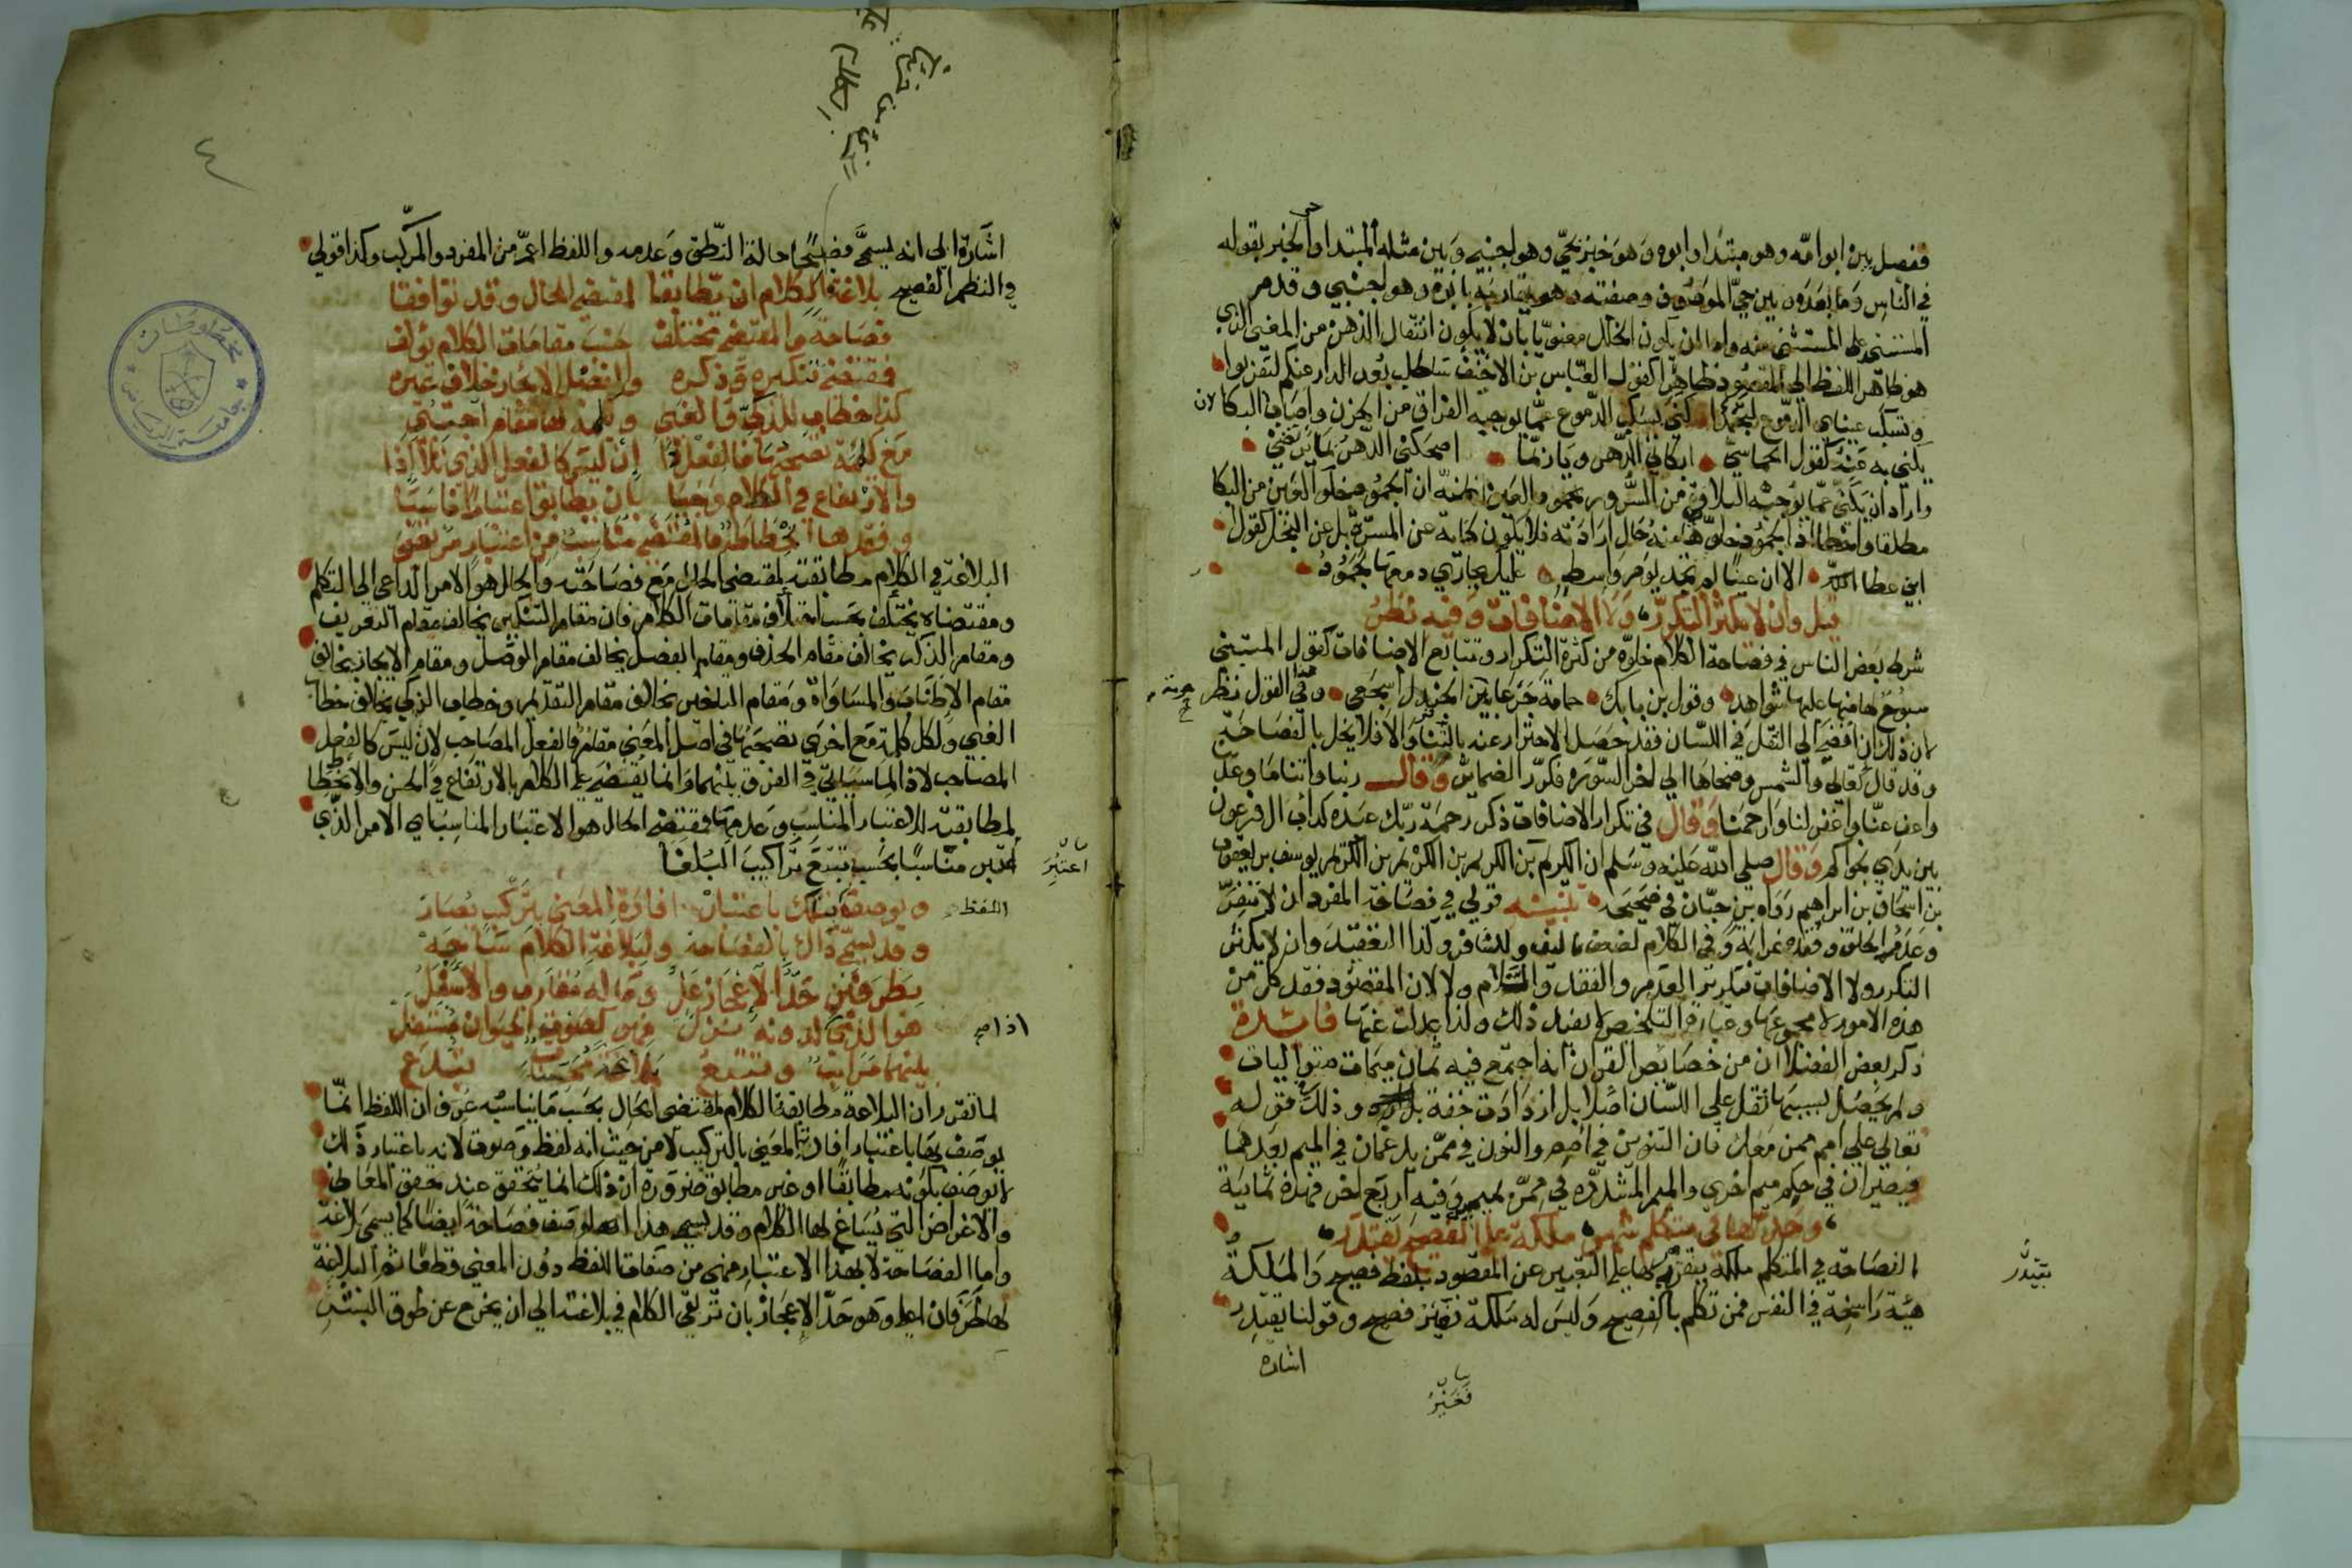 ففصل بين ابو امه وهو مبتدا وابوه وهو خبر بحي وهو اجنبي وبين مثله المبتدا والخبر بقوله
في الناس وما بعده وبين حي الموصوف وصفته وهو يقاربه بابوه وهو اجنبي وقدم
المستثنى على المستثنى منه واما ان يكون الخلل معنويا بان لا يكون انتقال الذهن من المعنى الذي
هو ظاهر اللفظ الى المقصود ظاهرا كقول العباس بن الاحنف ساطلب بعد الدار عنكم لتقربوا
وتسكب عيناي الدموع لتجمدا كنى بسكب الدموع عما يوجبه الفراق من الحزن واصاب لان البكا
يكنى به عنه كقول الحماسي ابكاني الدهر ويا ربما اضحكني الدهر بما يرضي
واراد ان يكني عما يوجبه التلاقي من السرور بجمود العين لظنه ان الجمود خلو العين من البكا
مطلقا واخطا اذ الجمود خلوها عنه حال ارادته فلا يكون كناية عن المسرة بل عن البخل كقول
ابي عطا الا ان عينا لم تجد يوم واسط عليك بجاري دمعها لجمود
قيل وان لا يكثر التكرر ولا الاضافات وفيه نظر
شرط بعض الناس في فصاحة الكلام خلوه من كثرة التكرار وتتابع الاضافات كقول المتنبي
سبوح لها منها عليها شواهد وقول بن بابك حمامة جرعا حومة الجندل اسجعي وفي القول نظر
لان ذلك ان افضى الى الثقل في اللسان فقد حصل الاحتراز عنه بالتنافر والا فلا يخل بالفصاحة
وقد قال تعالى والشمس وضحاها الى اخر السورة فكرر الضمائر وقال ربنا واتنا ما وعدتنا
واعف عنا واغفر لنا وارحمنا وقال في تكرار الاضافات ذكر رحمة ربك عبده كداب ال فرعون
بين يدي نجواكم وقال صلى الله عليه وسلم ان الكريم بن الكريم بن الكريم بن الكريم يوسف بن يعقوب
بن اسحاق بن ابراهيم رواه بن حبان في صحيحه تنبيه قولي في فصاحة المفرد ان لا تنفر
وعدم الخلف وفقد غرابة وفي الكلام لضعف تاليف وللتنافر وكذا التعقيد وان لا يكثر
التكرر ولا الاضافات بتكرير العدم والفقد واللام ولا لان المقصود فقد كل من
هذه الامور لا مجموعها وعبارة التلخيص لا تفيد ذلك ولذا عدلت عنها فائدة
ذكر بعض الفضلا ان من خصائص القران انه اجتمع فيه ثمان ميمات متواليات
ولم يحصل بسببها ثقل على اللسان اصلا بل ازدادت خفة وذلك قوله
تعالى على امم ممن معك فان التنوين في امم والنون في ممن يدغمان في الميم بعدهما
فيصيران في حكم ميم اخرى والميم المشددة في ممن بميمين وفيه اربع اخر فهذه ثمانية
وحدها في متكلم شهر ملكة على الفصيح يقتدر
الفصاحة في المتكلم ملكة يقتدر بها على التعبير عن المقصود بلفظ فصيح والملكة
هيئة راسخة في النفس فمن تكلم بالفصيح وليس له ملكة فغير فصيح وقولنا يقتدر
اشارة
اشارة الى انه يسمى فصيحا حالة النطق وعدمه واللفظ اعم من المفرد والمركب وكذا قولي
في النظم الفصيح بلاغة الكلام ان يطابقا لمقتضى الحال وقد توافقا
فصاحة والمقتضى مختلف حسب مقامات الكلام يؤلف
فمقتضى تنكيره وذكره والفصل الايجاز خلاف غيره
كذا خطاب للذكي والغبي وكلمة لها مقام اجنبي
مع كلمة تصحبها فالفعل ذا ان ليس كالفعل الذي تلا اذا
والارتفاع في الكلام وجبا بان يطابق اعتبارا ناسبا
وفقدها انحطاطه فالمقتضى مناسب من اعتبار مرتضى
البلاغة في الكلام مطابقته لمقتضى الحال مع فصاحته والحال هو الامر الداعي الى التكلم
ومقتضاه يختلف بحسب اختلاف مقامات الكلام فان مقام التنكير يخالف مقام التعريف
ومقام الذكر يخالف مقام الحذف ومقام الفصل يخالف مقام الوصل ومقام الايجاز يخالف
مقام الاطناب والمساواة ومقام التاخير يخالف مقام التقديم وخطاب الذكي يخالف خطاب
الغبي ولكل كلمة مع اخرى تصحبها في اصل المعنى مقام فالفعل المصاحب لان ليس كالفعل
المصاحب لاذا لما سياتي في الفرق بينهما وانما يقتضى على الكلام بالارتفاع في الحسن والانحطاط
لمطابقته للاعتبار المناسب وعدمها فمقتضى الحال هو الاعتبار المناسب اي الامر الذي
اعتبر مناسبا بحسب تتبع تراكيب البلغا
ويوصف اللفظ بتلك باعتبار افادة المعنى بتركيب يصار
وقد يسمى ذاك بالفصاحة ولبلاغة الكلام ساحه
بطرفين حد الاعجاز عل وما له مقارب والاسفل
هو الذي اذا لدونه نزل فهو كصوت الحيوان مستفل
بينهما مراتب وتتبع بلاغة محسنات تبدع
لما تقرر ان البلاغة مطابقة الكلام لمقتضى الحال بحسب ما يناسبه عرف ان اللفظ انما
يوصف بها باعتبار افادته المعنى بالتركيب لا من حيث انه لفظ وصوت لانه باعتبار ذلك
لا يوصف بكونه مطابقا او غير مطابق ضرورة ان ذلك انما يتحقق عند تحقق المعاني
والاغراض التي يساغ لها الكلام وقد يسمى هذا الوصف فصاحة ايضا كما يسمى بلاغة
واما الفصاحة لا بهذا الاعتبار فهي من صفات اللفظ دون المعنى قطعا ثم البلاغة
لها طرفان اعلى وهو حد الاعجاز بان ترتقي الكلام في بلاغته الى ان يخرج عن طوق البشر